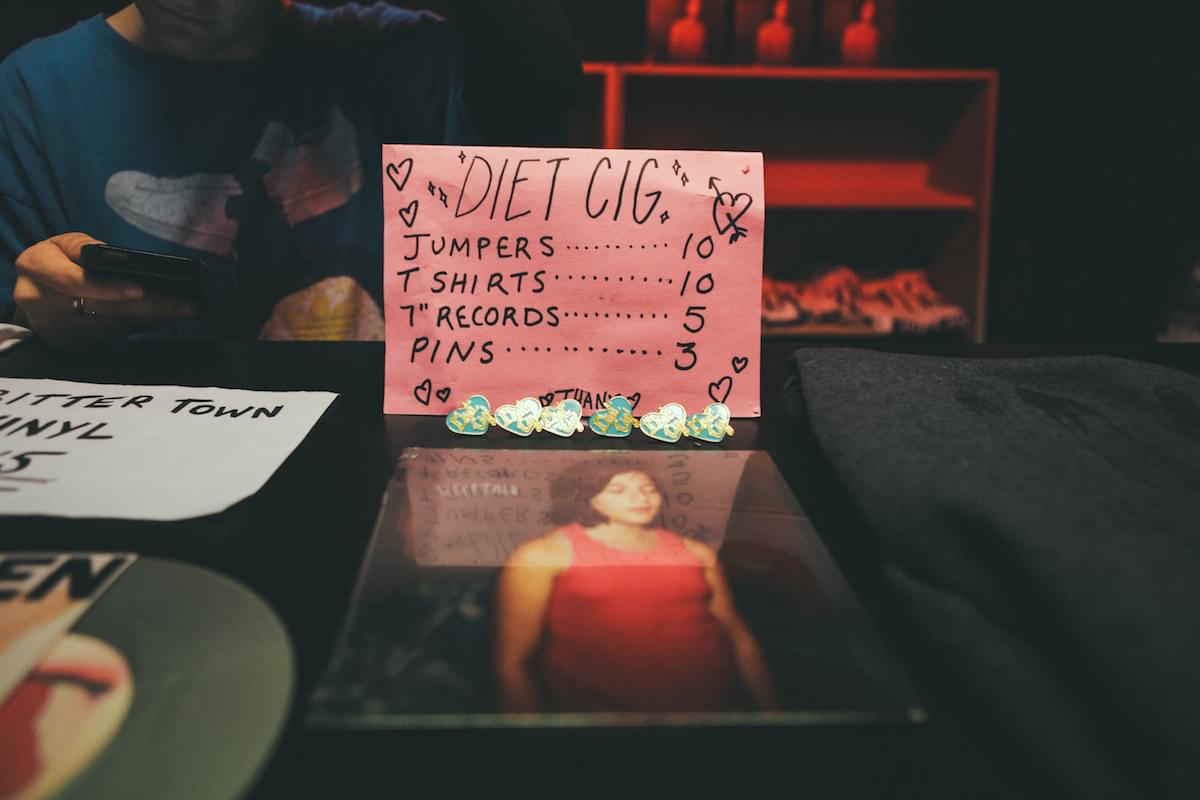 DIET CIG
JUMPERS .......... 10
T SHIRTS ............ 10
7" RECORDS ........... 5
PINS ............. 3
BITTER TOWN
VINYL
EN